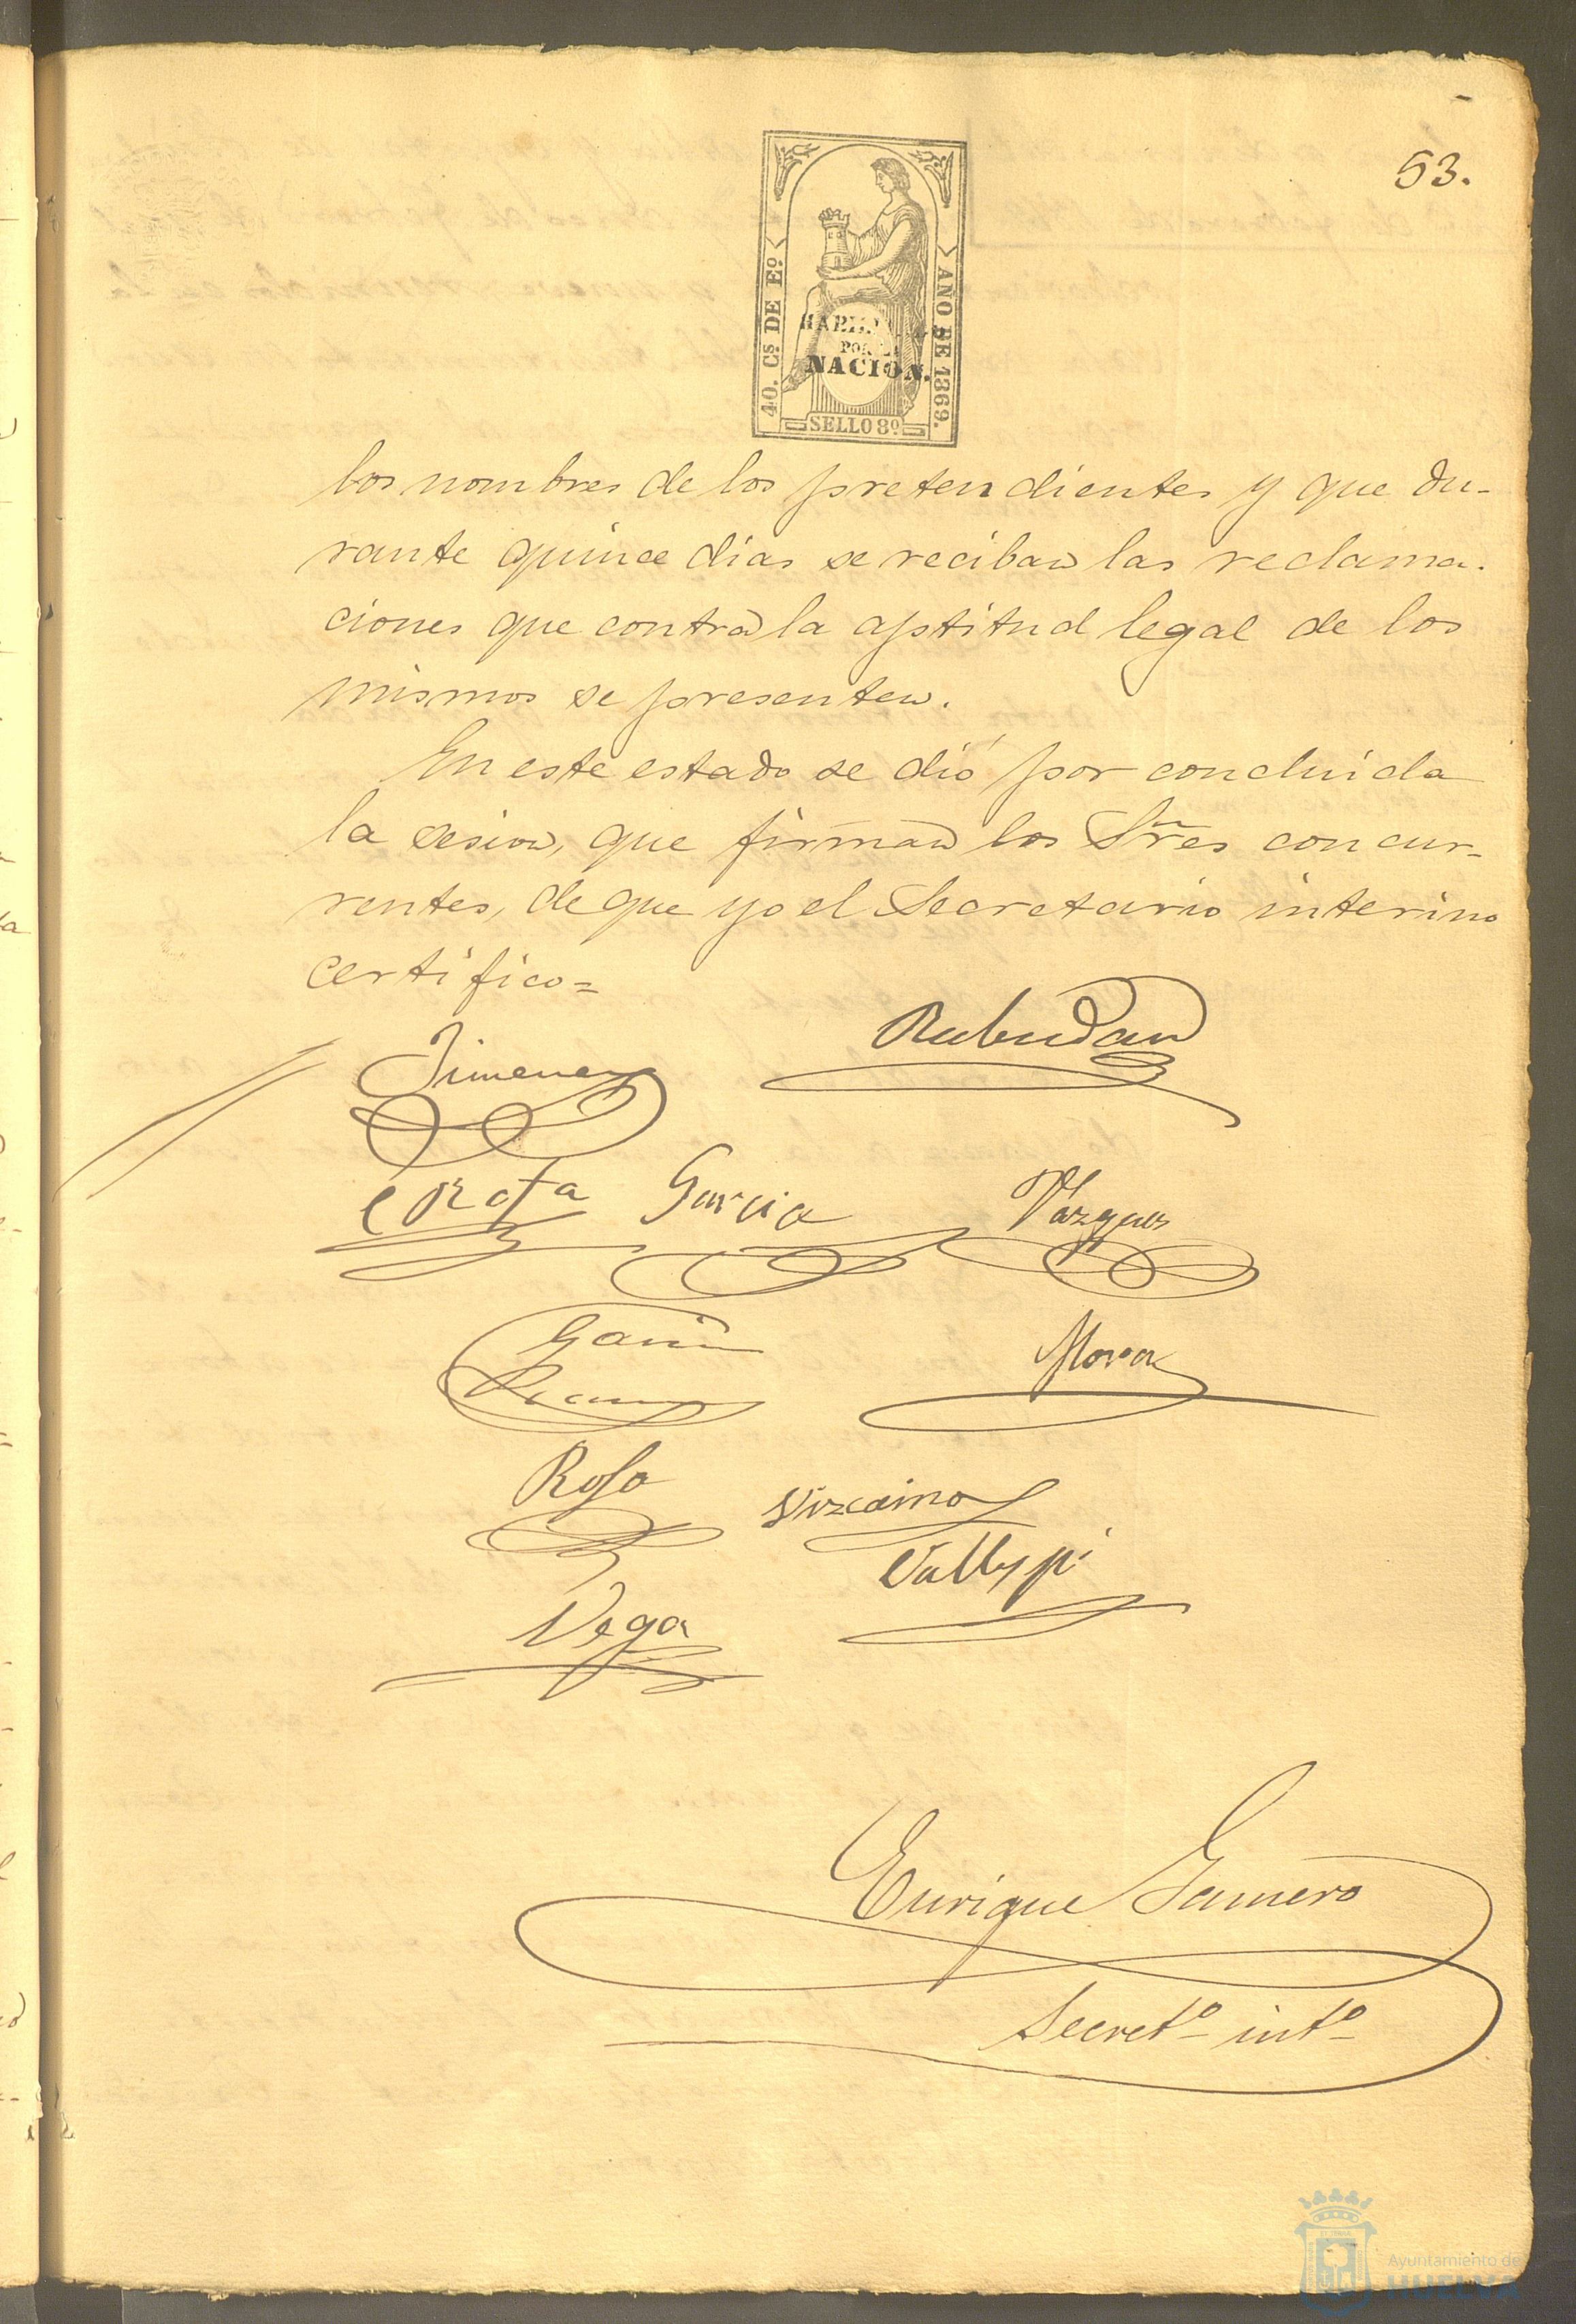 53.
40. Cs. DE Eo.
AÑO DE 1869.
HABILI
POR LA
NACION.
SELLO 8º
los nombres de los pretendientes y que du-
rante quince dias se reciban las reclama-
ciones que contra la aptitud legal de los
mismos se presenten.
En este estado se dió por concluida
la sesion, que firman los Sr̃es concur-
rentes, de que yo el Secretario interino
certifico=
Jimenez
Rota Garcia Vazquez
Garcia
Mora
Rosa
Vizcaino
Vega
Enrique Gamero
Secretº intº
Ayuntamiento de
HUELVA